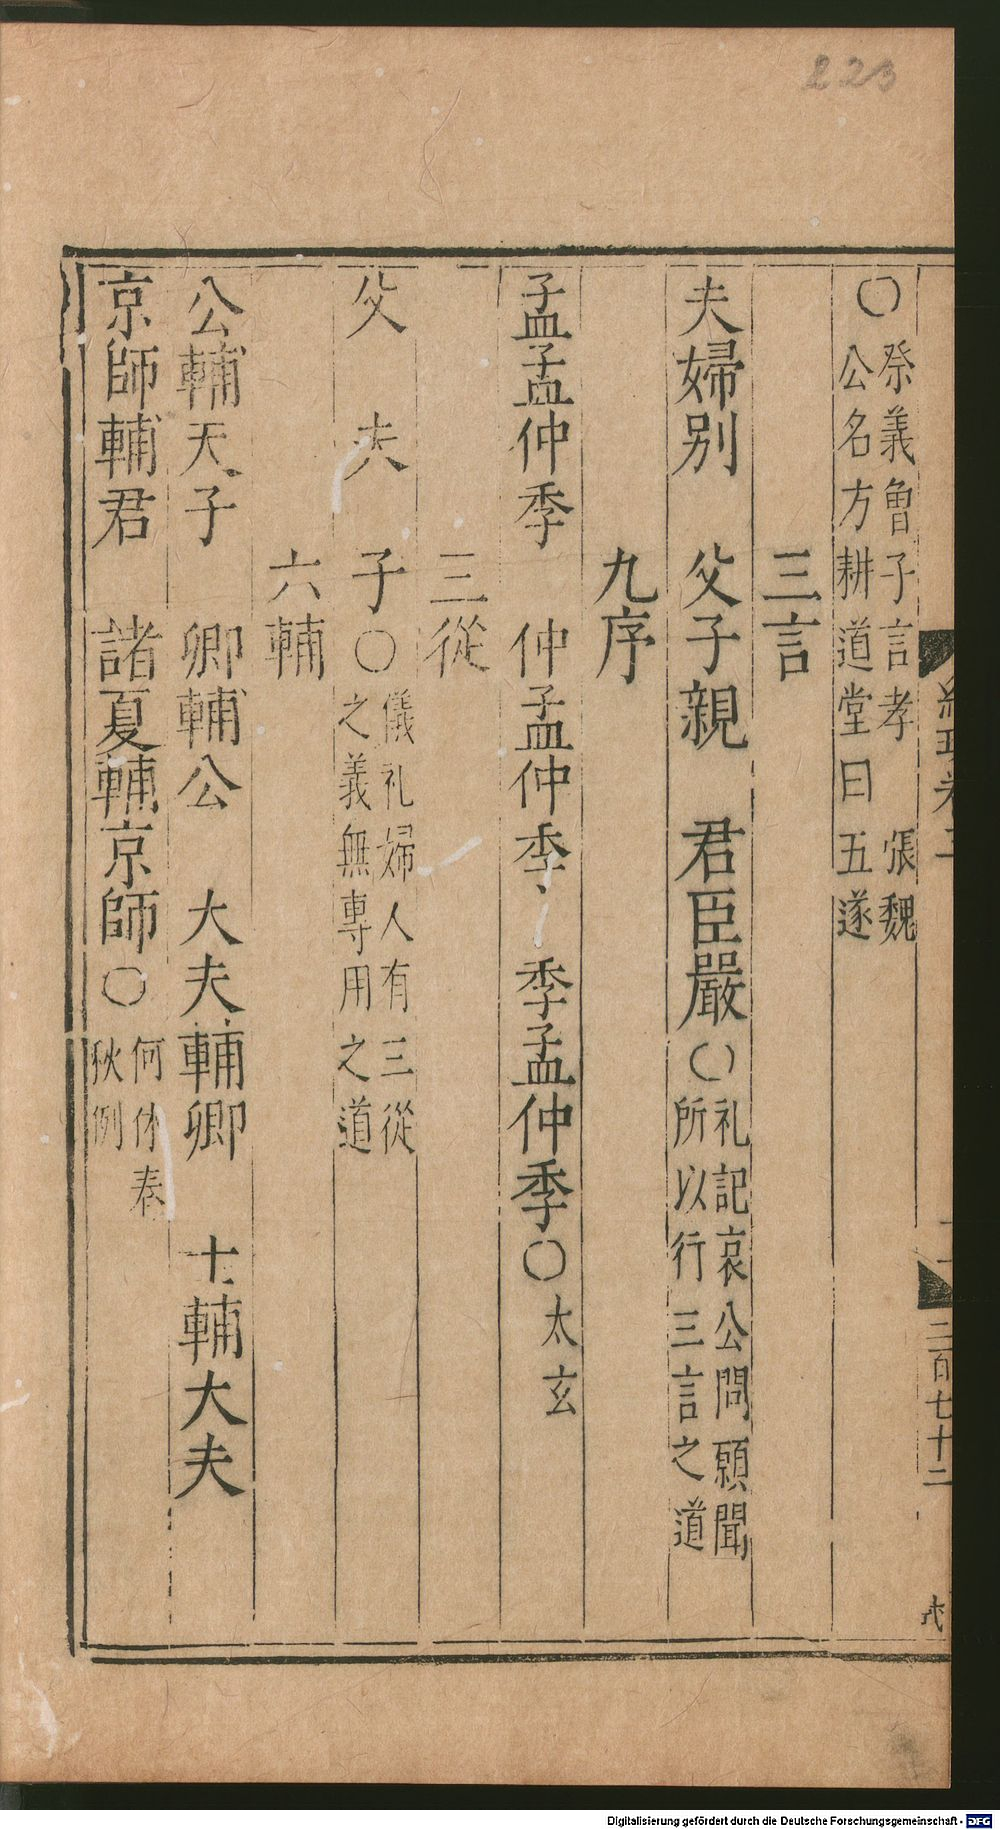 223
○祭義魯子言孝　張魏
公名方耕道堂曰五遂
三言
夫婦別　父子親　君臣嚴○礼記哀公問願聞
所以行三言之道
九序
孟孟仲季　仲孟仲季　季孟仲季○太玄
三從
父　夫　子○儀礼婦人有三從
之義無專用之道
六輔
公輔天子　卿輔公　大夫輔卿　士輔大夫
京師輔君　諸夏輔京師○何休春
秋例
二百七十二
Digitalisierung gefördert durch die Deutsche Forschungsgemeinschaft - DFG